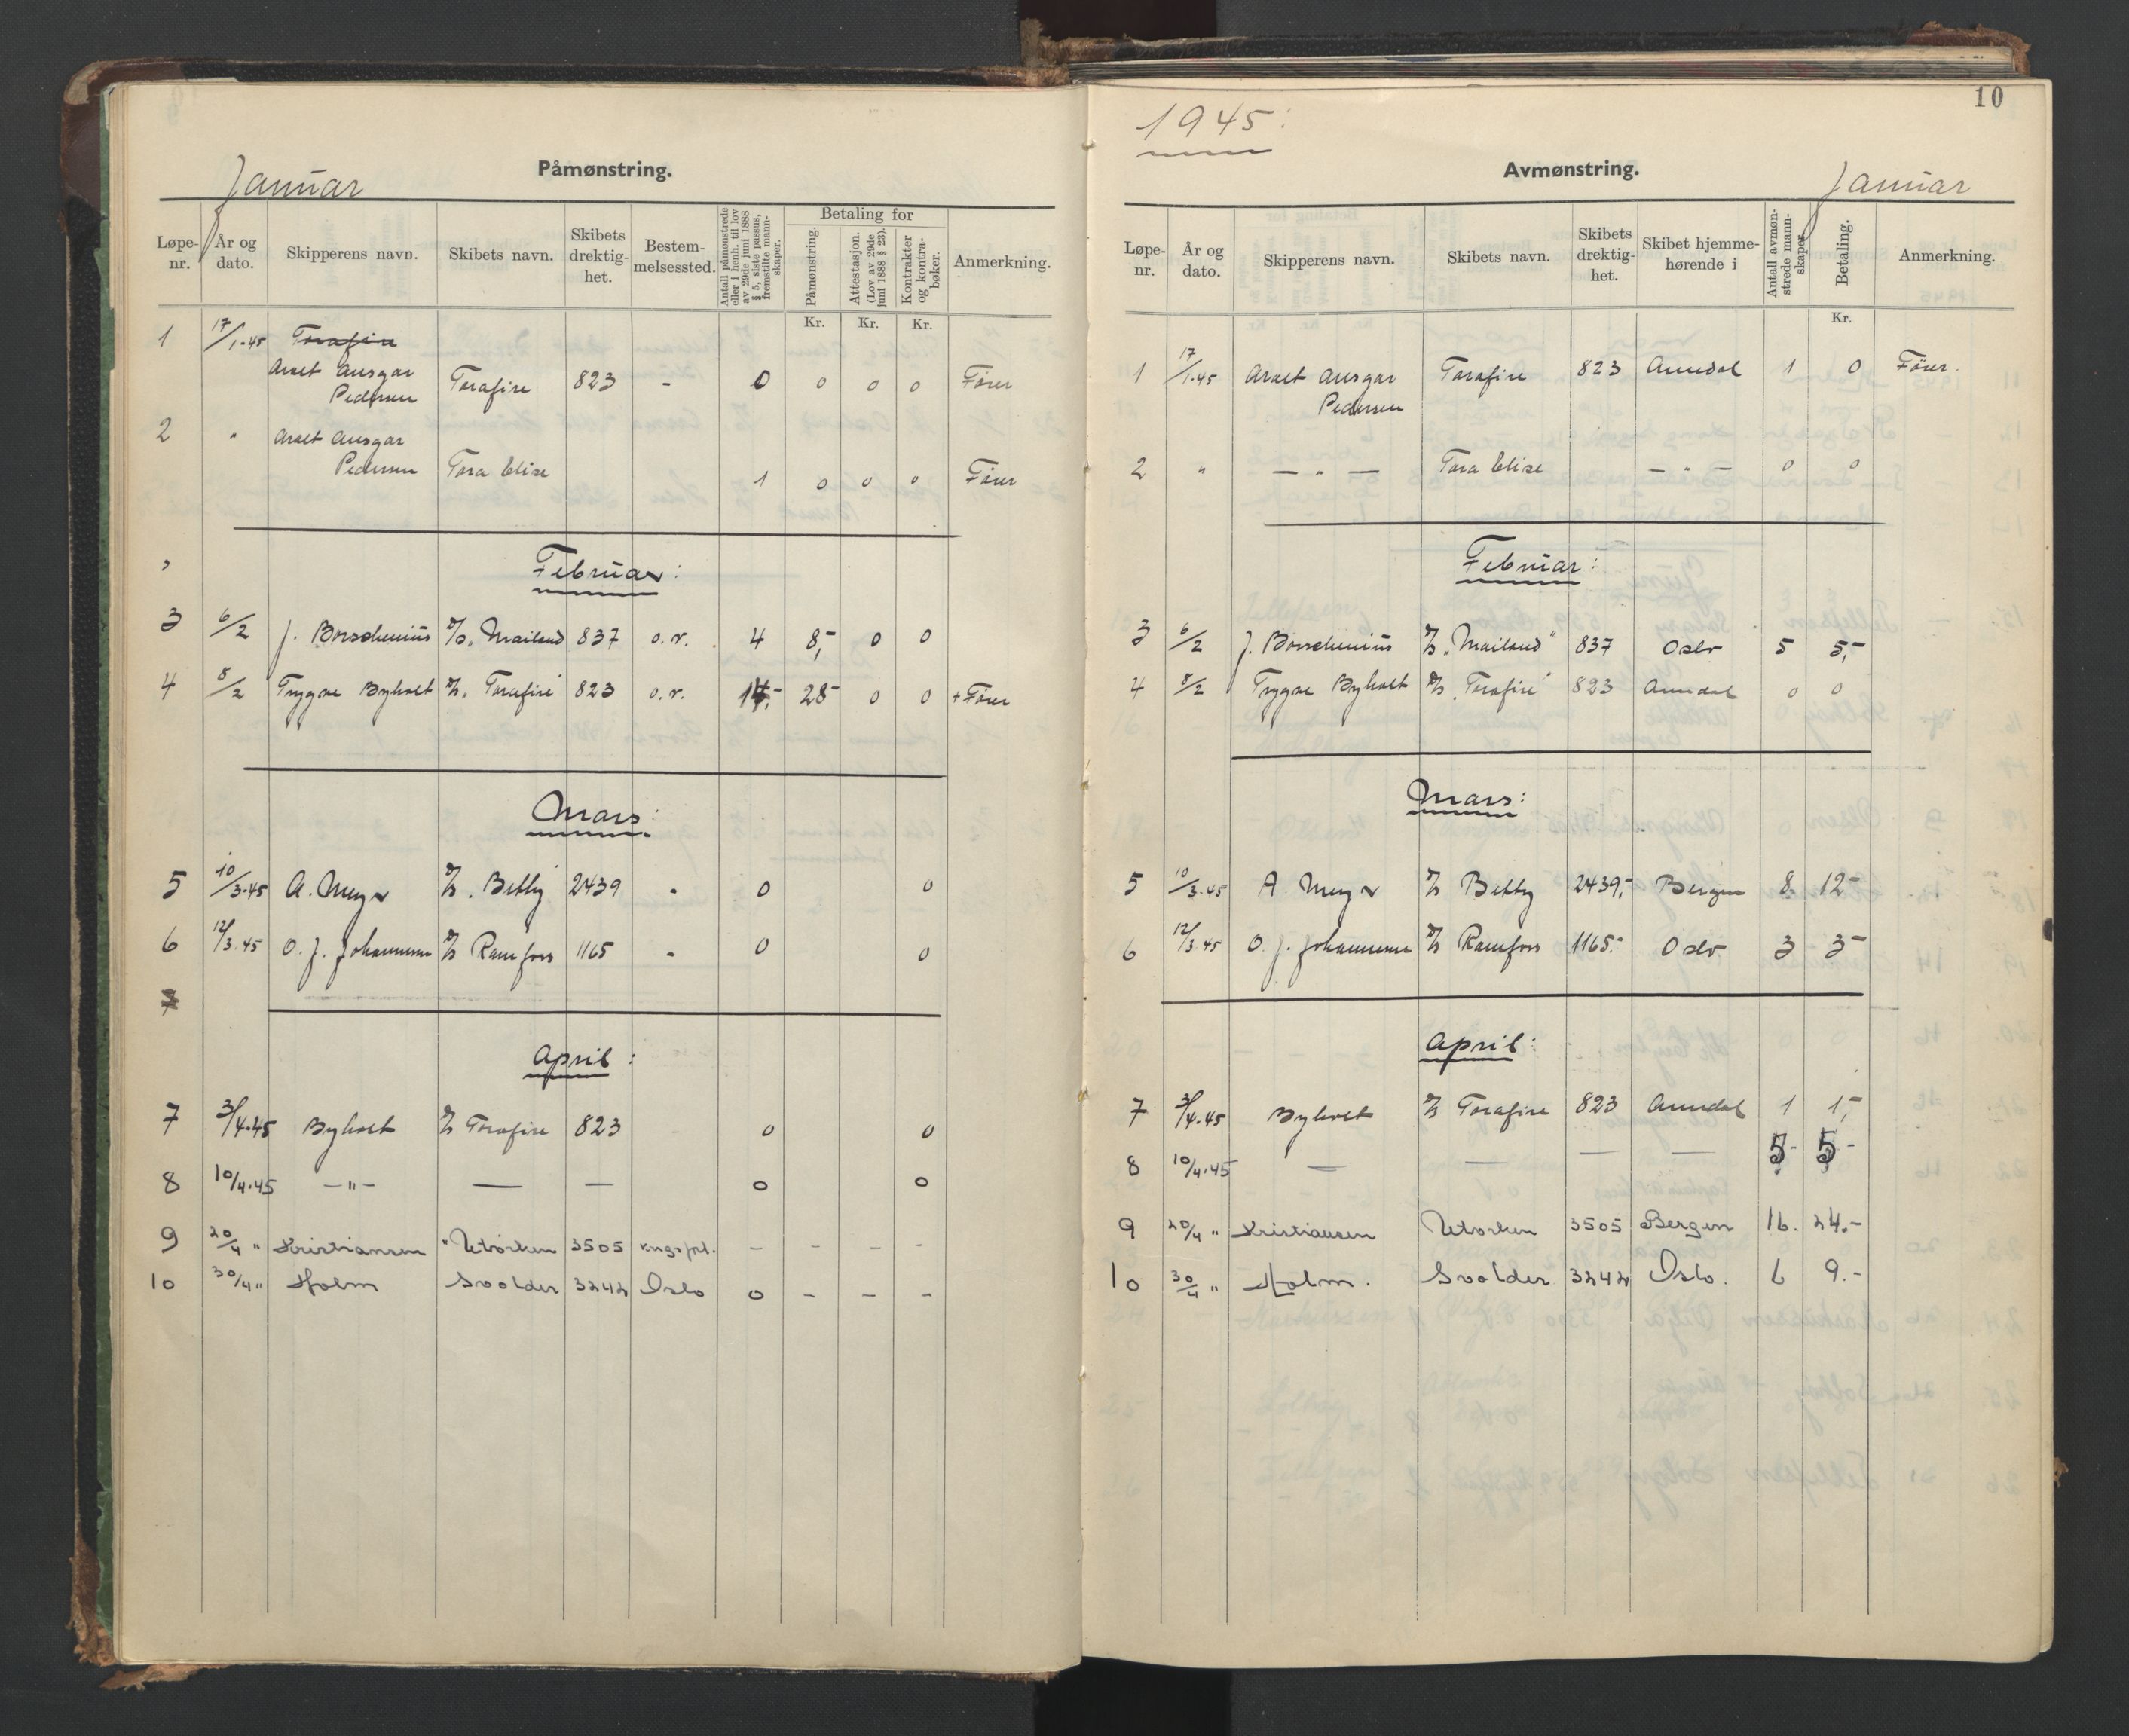 Januar
Påmønstring.
Løpe-nr. År og dato. Skipperens navn. Skibets navn. Skibets drektig-het. Bestem-melsessted. Antall påmønstrede eller i henh. til lov av 29de juni 1888 § 5, siste passus, fremstilte mann-skaper. Betaling for Påmønstring. Attestasjon. (Lov av 29de juni 1888 § 23). Kontrakter og kontra-bøker. Anmerkning.
Kr. Kr. Kr.
1 17/1-45 Torafire
Ansgar
Pedersen Torafire 823 - 0 0 0 0 Fører
2 " Ansgar
Pedersen Tora Elise 1 0 0 0 Fører
Februar:
3 6/2 J. Borschenius D/S. Mailand 837 o.r. 4 8,- 0 0
4 8/2 Trygve Byholt D/S. Torafire 823 o.r. 14,- 28- 0 0 + Fører
Mars:
5 10/3-45 A. Meyer D/S. Betty 2439 - 0 0
6 12/3.45 O. J. Johannesen D/S Ramfoss 1165 - 0 0
7
April:
7 3/4.45 Byholt D/S Torafire 823 0 0
8 10/4.45 — " — — — 0 0
9 20/4 " Kristiansen " 3505 - - - -
10 30/4 " Holm Svolder 3242 Oslo 0 - - -
1945:
10
Avmønstring.
Januar
Løpe-nr. År og dato. Skipperens navn. Skibets navn. Skibets drektig-het. Skibet hjemme-hørende i Antall avmøn-strede mann-skaper. Betaling. Anmerkning.
Kr.
1 17/1.45 Ansgar Torafire 823 Arendal 1 0 Fører.
Pedersen
2 " — " — Tora Elise — " — 0 0
Februar:
3 6/2 J. Borschenius D/S. "Mailand" 837 Oslo 5 5,-
4 8/2 Trygve Byholt D/S. Torafire 823 Arendal 0 0
Mars:
5 10/3.45 A Meyer D/S Betty 2439,- Bergen 8 12-
6 12/3.45 O. J. Johannesen D/S Ramfoss 1165.- Oslo 3 3-
April:
7 3/4.45 Byholt D/S Torafire 823 Arendal 1 1,-
8 10/4.45 — — — — 5- 5-
9 20/4 " Kristiansen 3505 Bergen 16. 24.-
10 30/4 " Holm. Svolder 3242 Oslo. 6 9.-